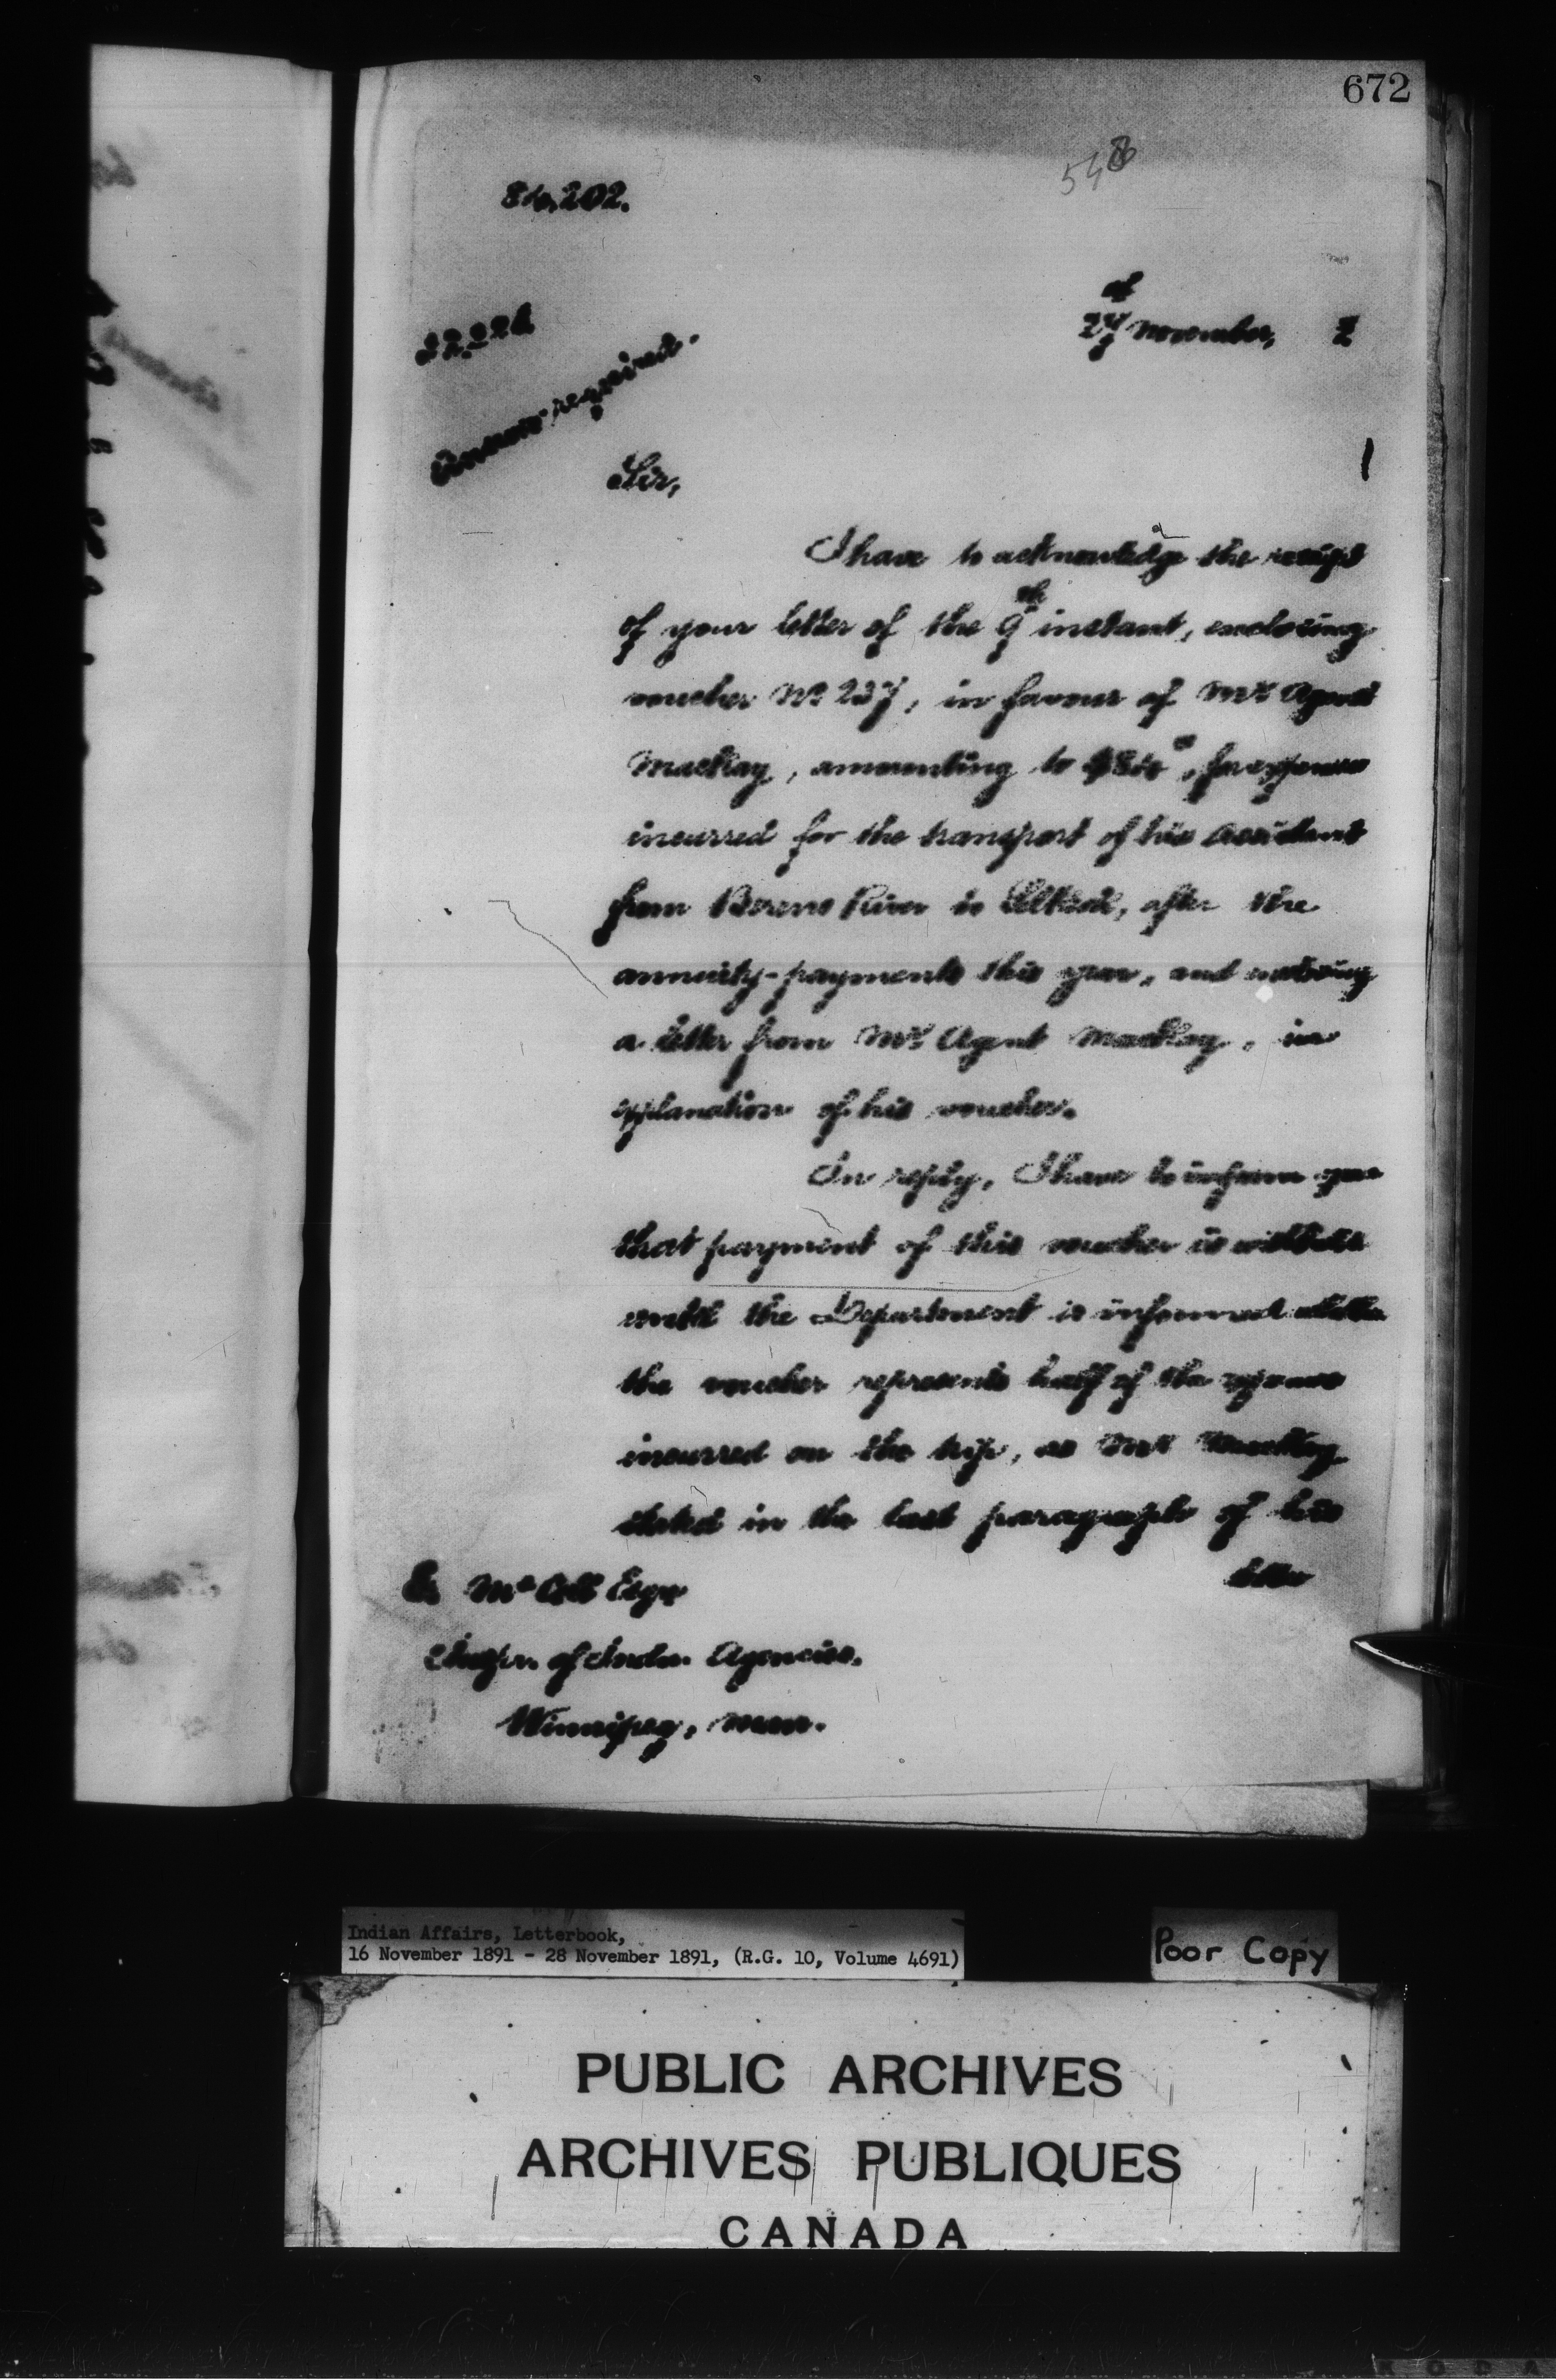 672
548
202.
November,
Answer required.
Sir,
I have to acknowledge the receipt
of your letter of the 9th instant, enclosing
voucher No 237, in favour of Mr. Agent
Mackay, amounting to for expenses
incurred for the transport of his assistant
from Berens River to Selkirk, after the
annuity-payments this year, and enclosing
a letter from Mr. Agent Mackay, in
explanation of his voucher.
In reply, I have to inform you
that payment of this voucher is withheld
until the Department is informed whether
the voucher represents half of the expense
incurred on the trip, as Mr. Mackay
stated in the last paragraph of his
letter
E. McColl Esqr
Inspr. of Indn. Agencies.
Winnipeg, Man.
Indian Affairs, Letterbook,
16 November 1891 - 28 November 1891, (R.G. 10, Volume 4691)
Poor Copy
PUBLIC ARCHIVES
ARCHIVES PUBLIQUES
CANADA